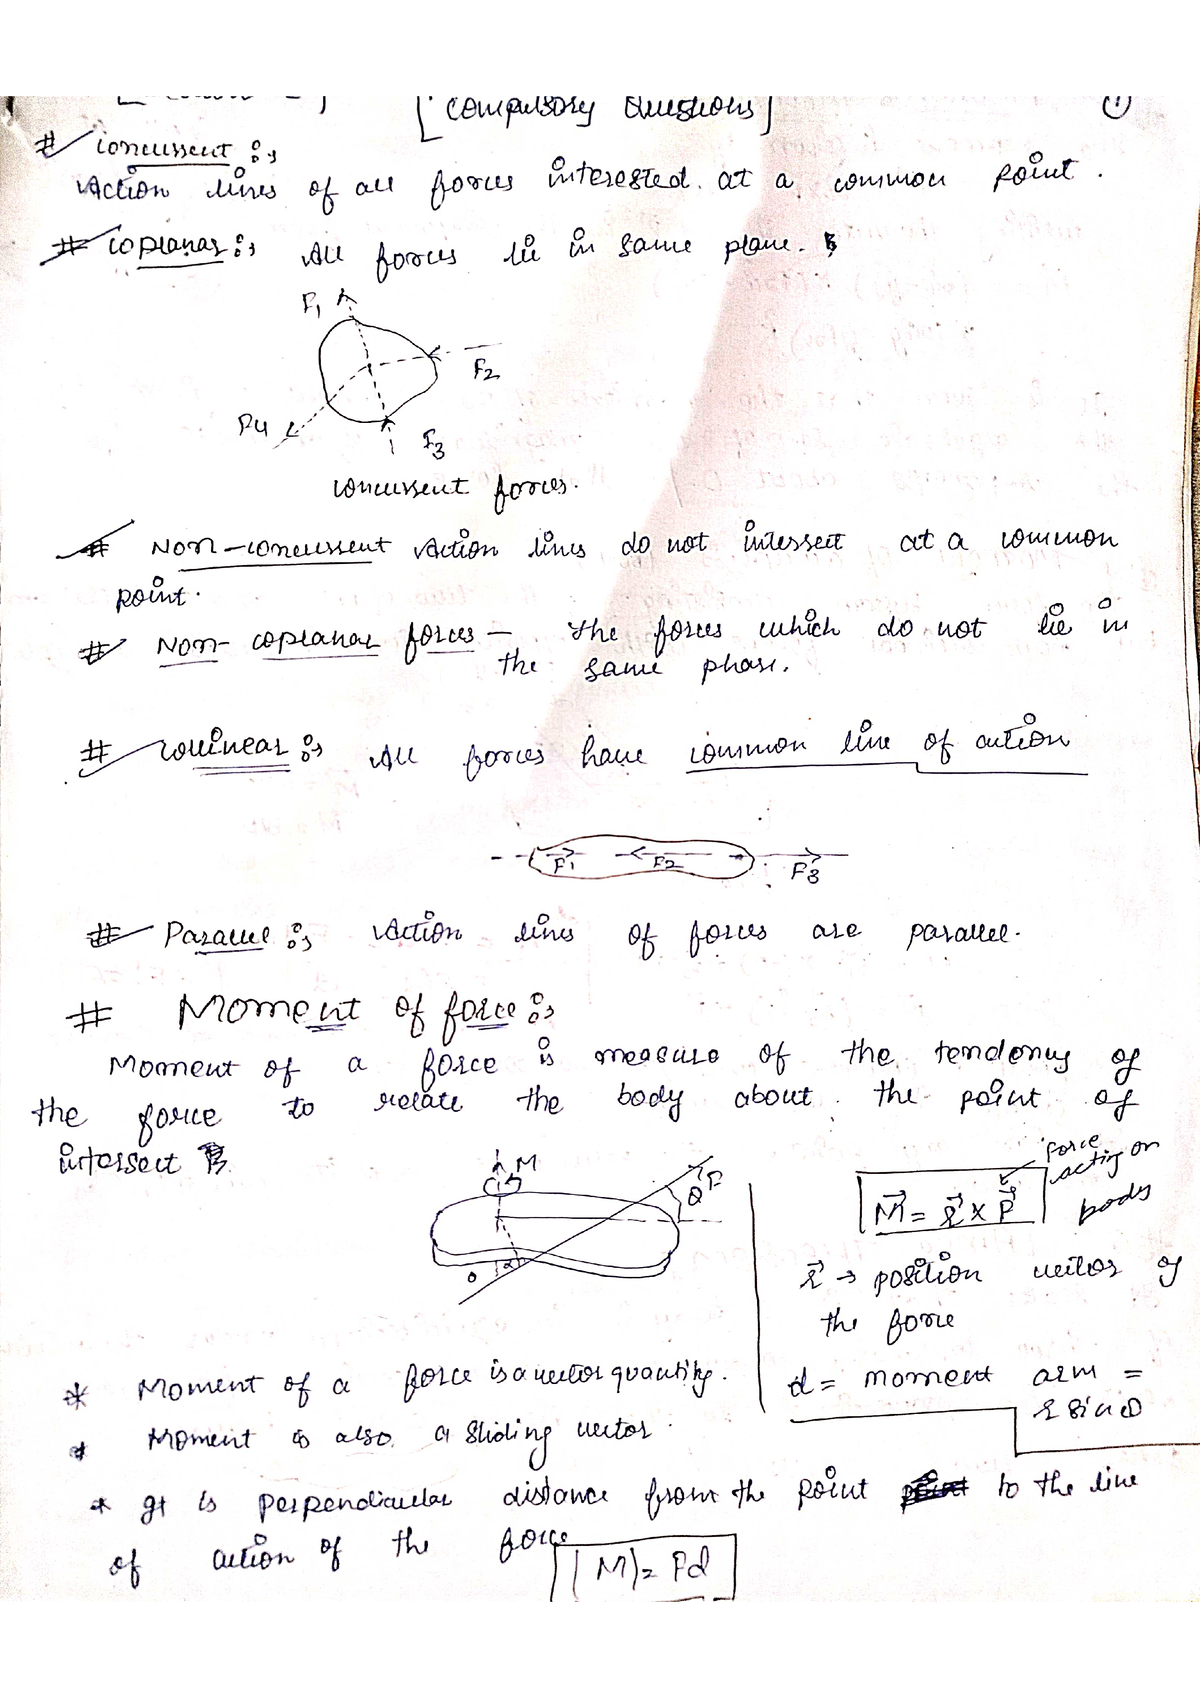 [ Compulsory Questions ] 1
# Concurrent :→
Action lines of all forces interested. at a common point.
# Coplanar :→ All forces lie in same plane.
F1
F2
F4
F3
Concurrent forces.
# Non-concurrent Action lines do not intersect at a common
point.
# Non-coplanar forces – The forces which do not lie in
the same phase.
# Collinear :→ All forces have common line of action
F1 F2 F3
# Parallel :→ Action lines of forces are parallel.
# Moment of force :→
Moment of a force is measure of the tendency of
the force to relate the body about the point of
intersect
M
F
θ
O
α
force
acting on
body
M⃗ = r⃗ × F⃗
r⃗ → position vector of
the force
d = moment arm =
r sinθ
* Moment of a force is a vector quantity.
* Moment is also a sliding vector.
* It is perpendicular distance from the point to the line
of action of the force
|M| = Fd